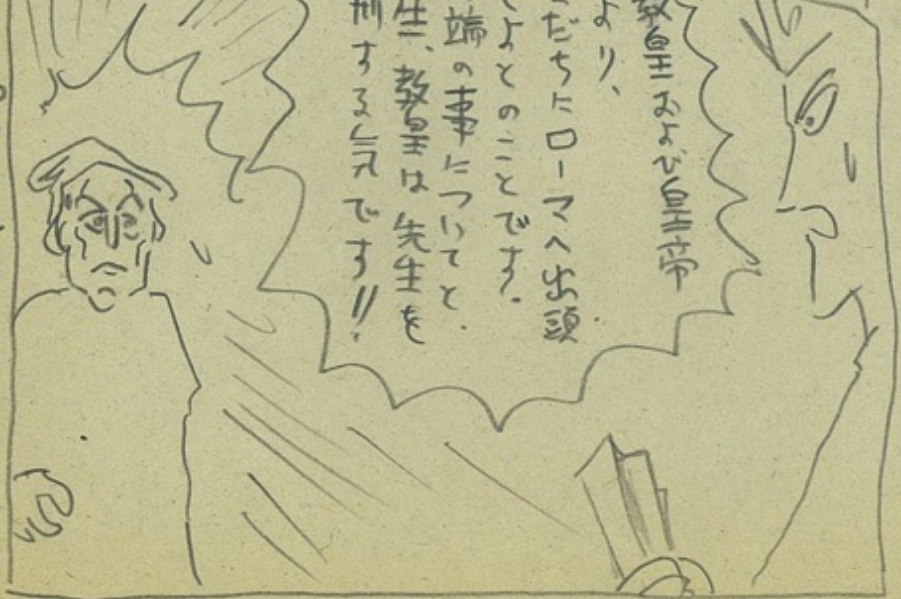 教皇および皇帝
より、
だちにローマへ出頭
よとのことです。
端の事についてと
生、教皇は先生を
刑する気です!!